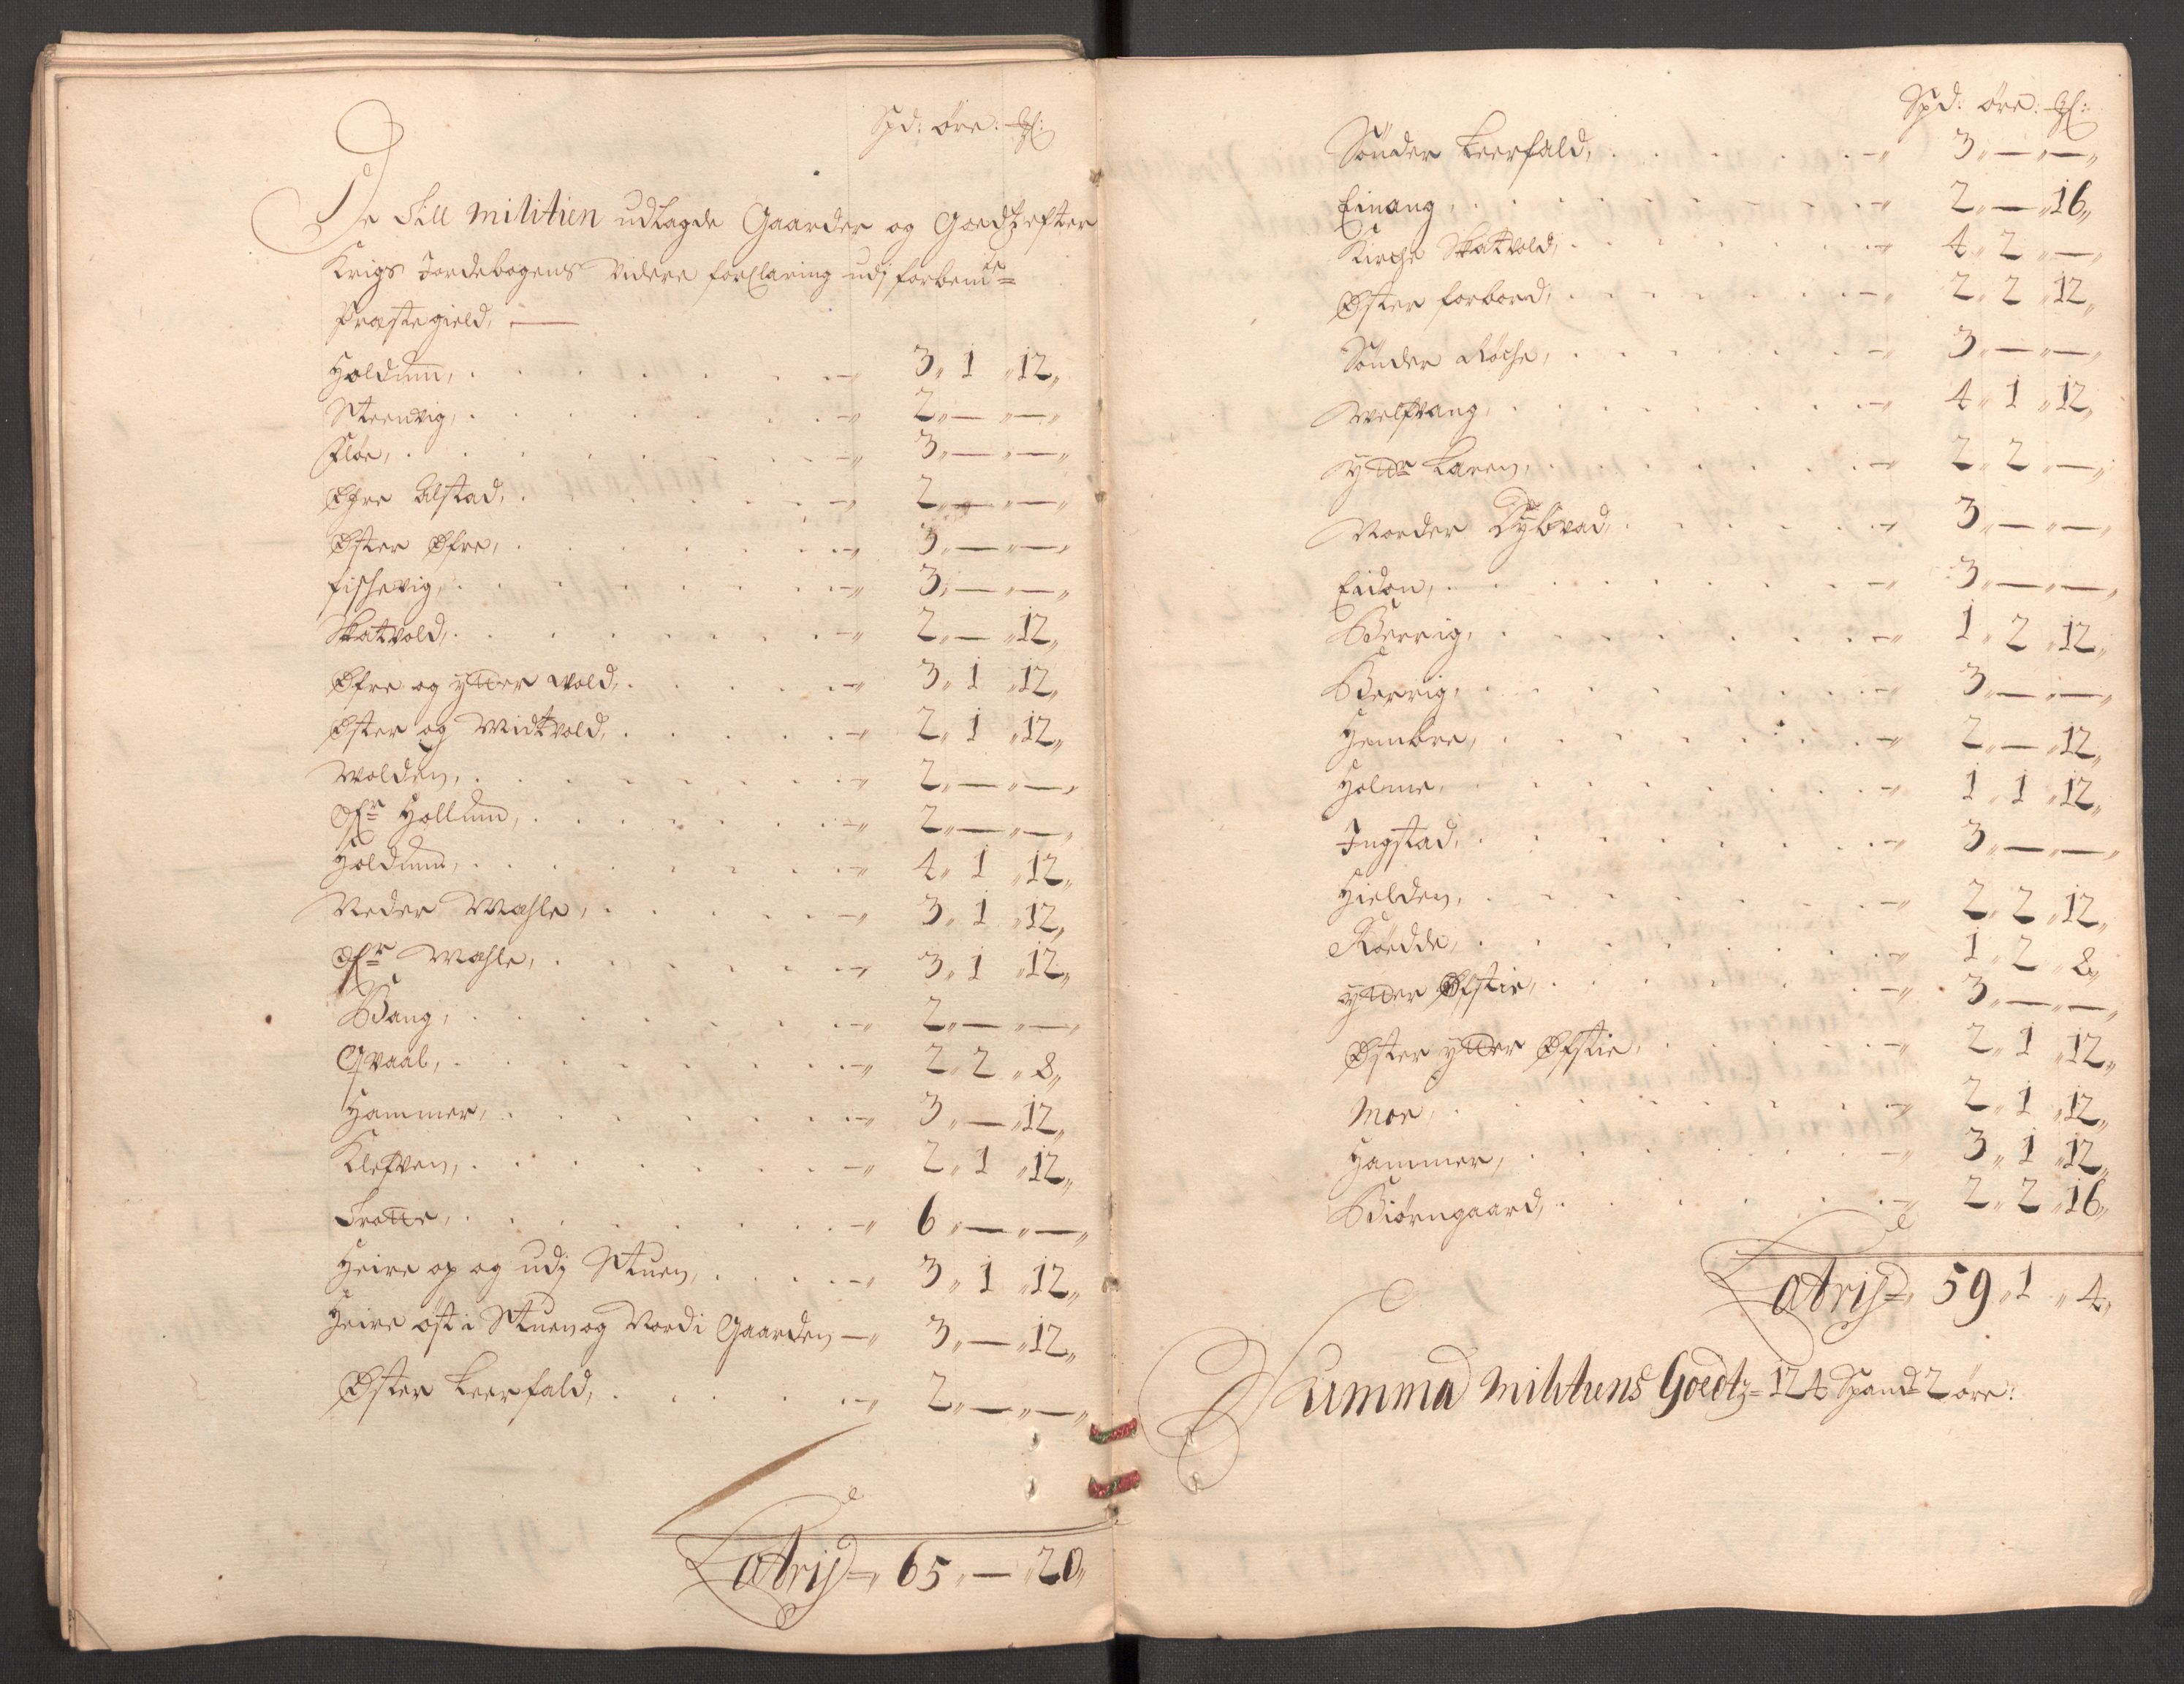 Spd: öre: ʒl:
De till militien udlagde Gaarder og Goedz efter
Krigs Jordebogens Videre forklaring udj forbemte
Præstegield,
Holdum, 3 „ 1 „ 12 „
Steenvig, 2 „ — „ — „
Floe, 3 „ — „ — „
Øfre Alstad, 2 „ — „ — „
Øster Øfre, 3 „ — „ — „
Fischevig, 3 „ — „ — „
Skatvold, 2 „ — „ 12 „
Øfre og ytter Wold, 3 „ 1 „ 12 „
Øster og Midtvold, 2 „ 1 „ 12 „
Wolden, 2 „ — „ — „
Øfr Hollum, 2 „ — „ — „
Holdum, 4 „ 1 „ 12 „
Neder Mahle, 3 „ 1 „ 12 „
Øfr Mahle, 3 „ 1 „ 12 „
Bang, 2 „ — „ — „
Qvaal, 2 „ 2 „ 8 „
Hammer, 3 „ — „ 12 „
Klefven, 2 „ 1 „ 12 „
Trøtte, 6 „ — „ — „
Heire op og udj Stuen, 3 „ 1 „ 12 „
Heire öst i Stuen og Nord i Gaarden 3 „ — „ 12 „
Øster Leerfald, 2 „ — „ — „
Latris 65 „ — „ 20 „
Spd: öre: ʒl:
Sönder Leerfald, 3 „ — „ — „
Einang, 2 „ — „ 16 „
Kirche Skatvold, 4 „ 2 „ — „
Øster forbord, 2 „ 2 „ 12 „
Sönder Röche, 3 „ — „ — „
Welfvang, 4 „ 1 „ 12 „
Yttr Laren, 2 „ 2 „ — „
Norder Dybvad, 3 „ — „ — „
Eidon, 3 „ — „ — „
Berrig, 1 „ 2 „ 12 „
Berrig, 3 „ — „ — „
Hembre, 2 „ — „ 12 „
Holme, 1 „ 1 „ 12 „
Ingstad, 3 „ — „ — „
Hielden, 2 „ 2 „ 12 „
Ködde, 1 „ 2 „ 8 „
Ytter Øfstie, 3 „ — „ — „
Øster ytter Øfstie, 2 „ 1 „ 12 „
Moe, 2 „ 1 „ 12 „
Hammer, 3 „ 1 „ 12 „
Biörngaard, 2 „ 2 „ 16 „
Latris 59 „ 1 „ 4 „
Summa militiens Goedtz = 124 Spand 2 öre: